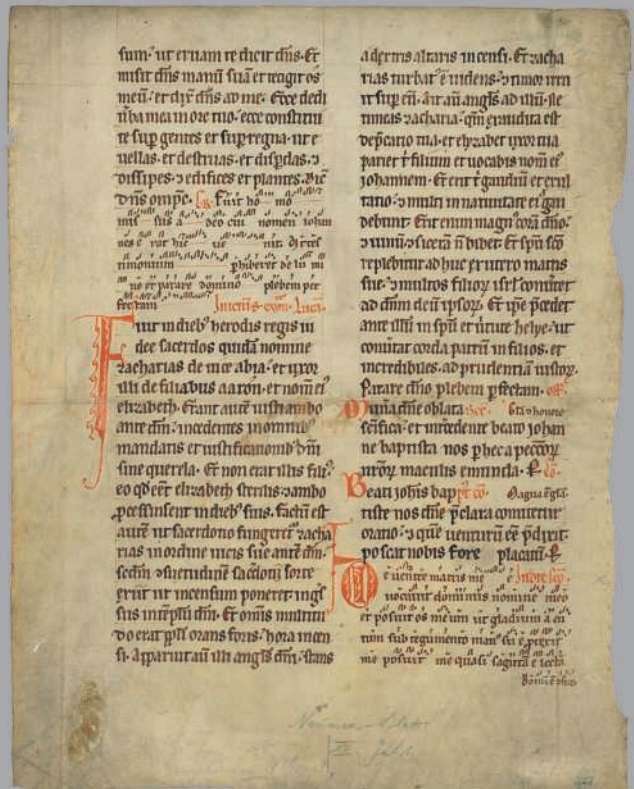 sum· ut eruam te dicit dñs· Et
misit dñs manū suā et tetigit os
meū· et dix̄ dñs ad me· Ecce dedi
u̅ba mea in ore tuo· ecce constitui
te sup gentes et sup regna· ut e
uellas· et destruas· et disp̱das· ⁊
dissipes· ⁊ edifices et plantes. Dic̄
dn̄s omp̄c. Fuit ho mo
mis sus a deo cui nomen ioh̄n
nes e rat hic ue nit·
timonium phiberet de lu mi
ne et parare domino plebem per
fectam Iniciū s. eūu· Lucā.
Fuit in dieb; herodis regis iu
dee sacerdos quidā nomine
zacharias de uice abia· et uxor
illi de filiabus aaron· et nom̄ ei᷒
elizabeth· Erant autē iusti ambo
ante dm̄· incedentes in omnib;
mandatis et iustificationib; dn̄i
sine querela· Et non erat illis fili᷒
eo qd eēt elizabeth sterilis· ⁊ ambo
p̱cessissent in dieb; suis. Factū est
autē ut sacerdotio fungeret᷒ zacha
rias in ordine uicis sue ante dm̄·
secdm̄ ⁊suetudinē sac̄dotij sorte
exiit ut incensum poneret· ing̱s
sus in templū dn̄i· Et om̄is multitu
do erat pp̄li orans foris· hora incen
si· Apparuit aū illi angl̄s dn̄i· stans
a dextris altaris incensi· Et zacha
rias turbat᷒ ē uidens· ⁊ timor irru
it sup eū· Ait aū angl̄s ad illū· Ne
timeas zacharia· qm̄ exaudita est
dep̱catio tua· et elyzabet uxor tua
pariet t̄ filium et uocabis nom̄ ei᷒
iohannem· Et erit t̄ gaudiū et exul
tatio· ⁊ multi in natiuitate ei᷒ gau
debunt· Erit enim magn᷒ corā dn̄o·
⁊ uinū ⁊ sicerā n̄ bibet· Et spū sc̄o
replebitur adhuc ex utero matris
sue· ⁊ multos filior̄ isrl̄ conuertet
ad dn̄m deū ipsor̄· Et ip̄e p̱cedet
ante illū in spū et uirtute helye· ut
conuertat corda patrū in filios· et
incredibiles· ad prudentiā iustor̄·
Parare dn̄o plebem p̱fectam· off.
Muna dn̄e oblata Sec̄. Gl̄a ⁊ honore
sc̄ifica· et int̄cedente beato iohan
ne baptista nos p̱ hec a peccor̄
nr̄or̄ maculis emunda· P̱ Co·
Beati ioh̄is bap pt̄ co· Magna ē gl̄a
tiste nos dn̄e p̱clara comitetur
oratio· ⁊ que uenturū eē p̱dixit·
poscat nobis fore placatū· P̱
De uentre matris me e In die sc̄o
uocauit dominus nomine meo
et posuit os meum ut gladium a cu
tum sub tegumento man᷒ su e p̱texit
me posuit me quasi sagitta e lecta